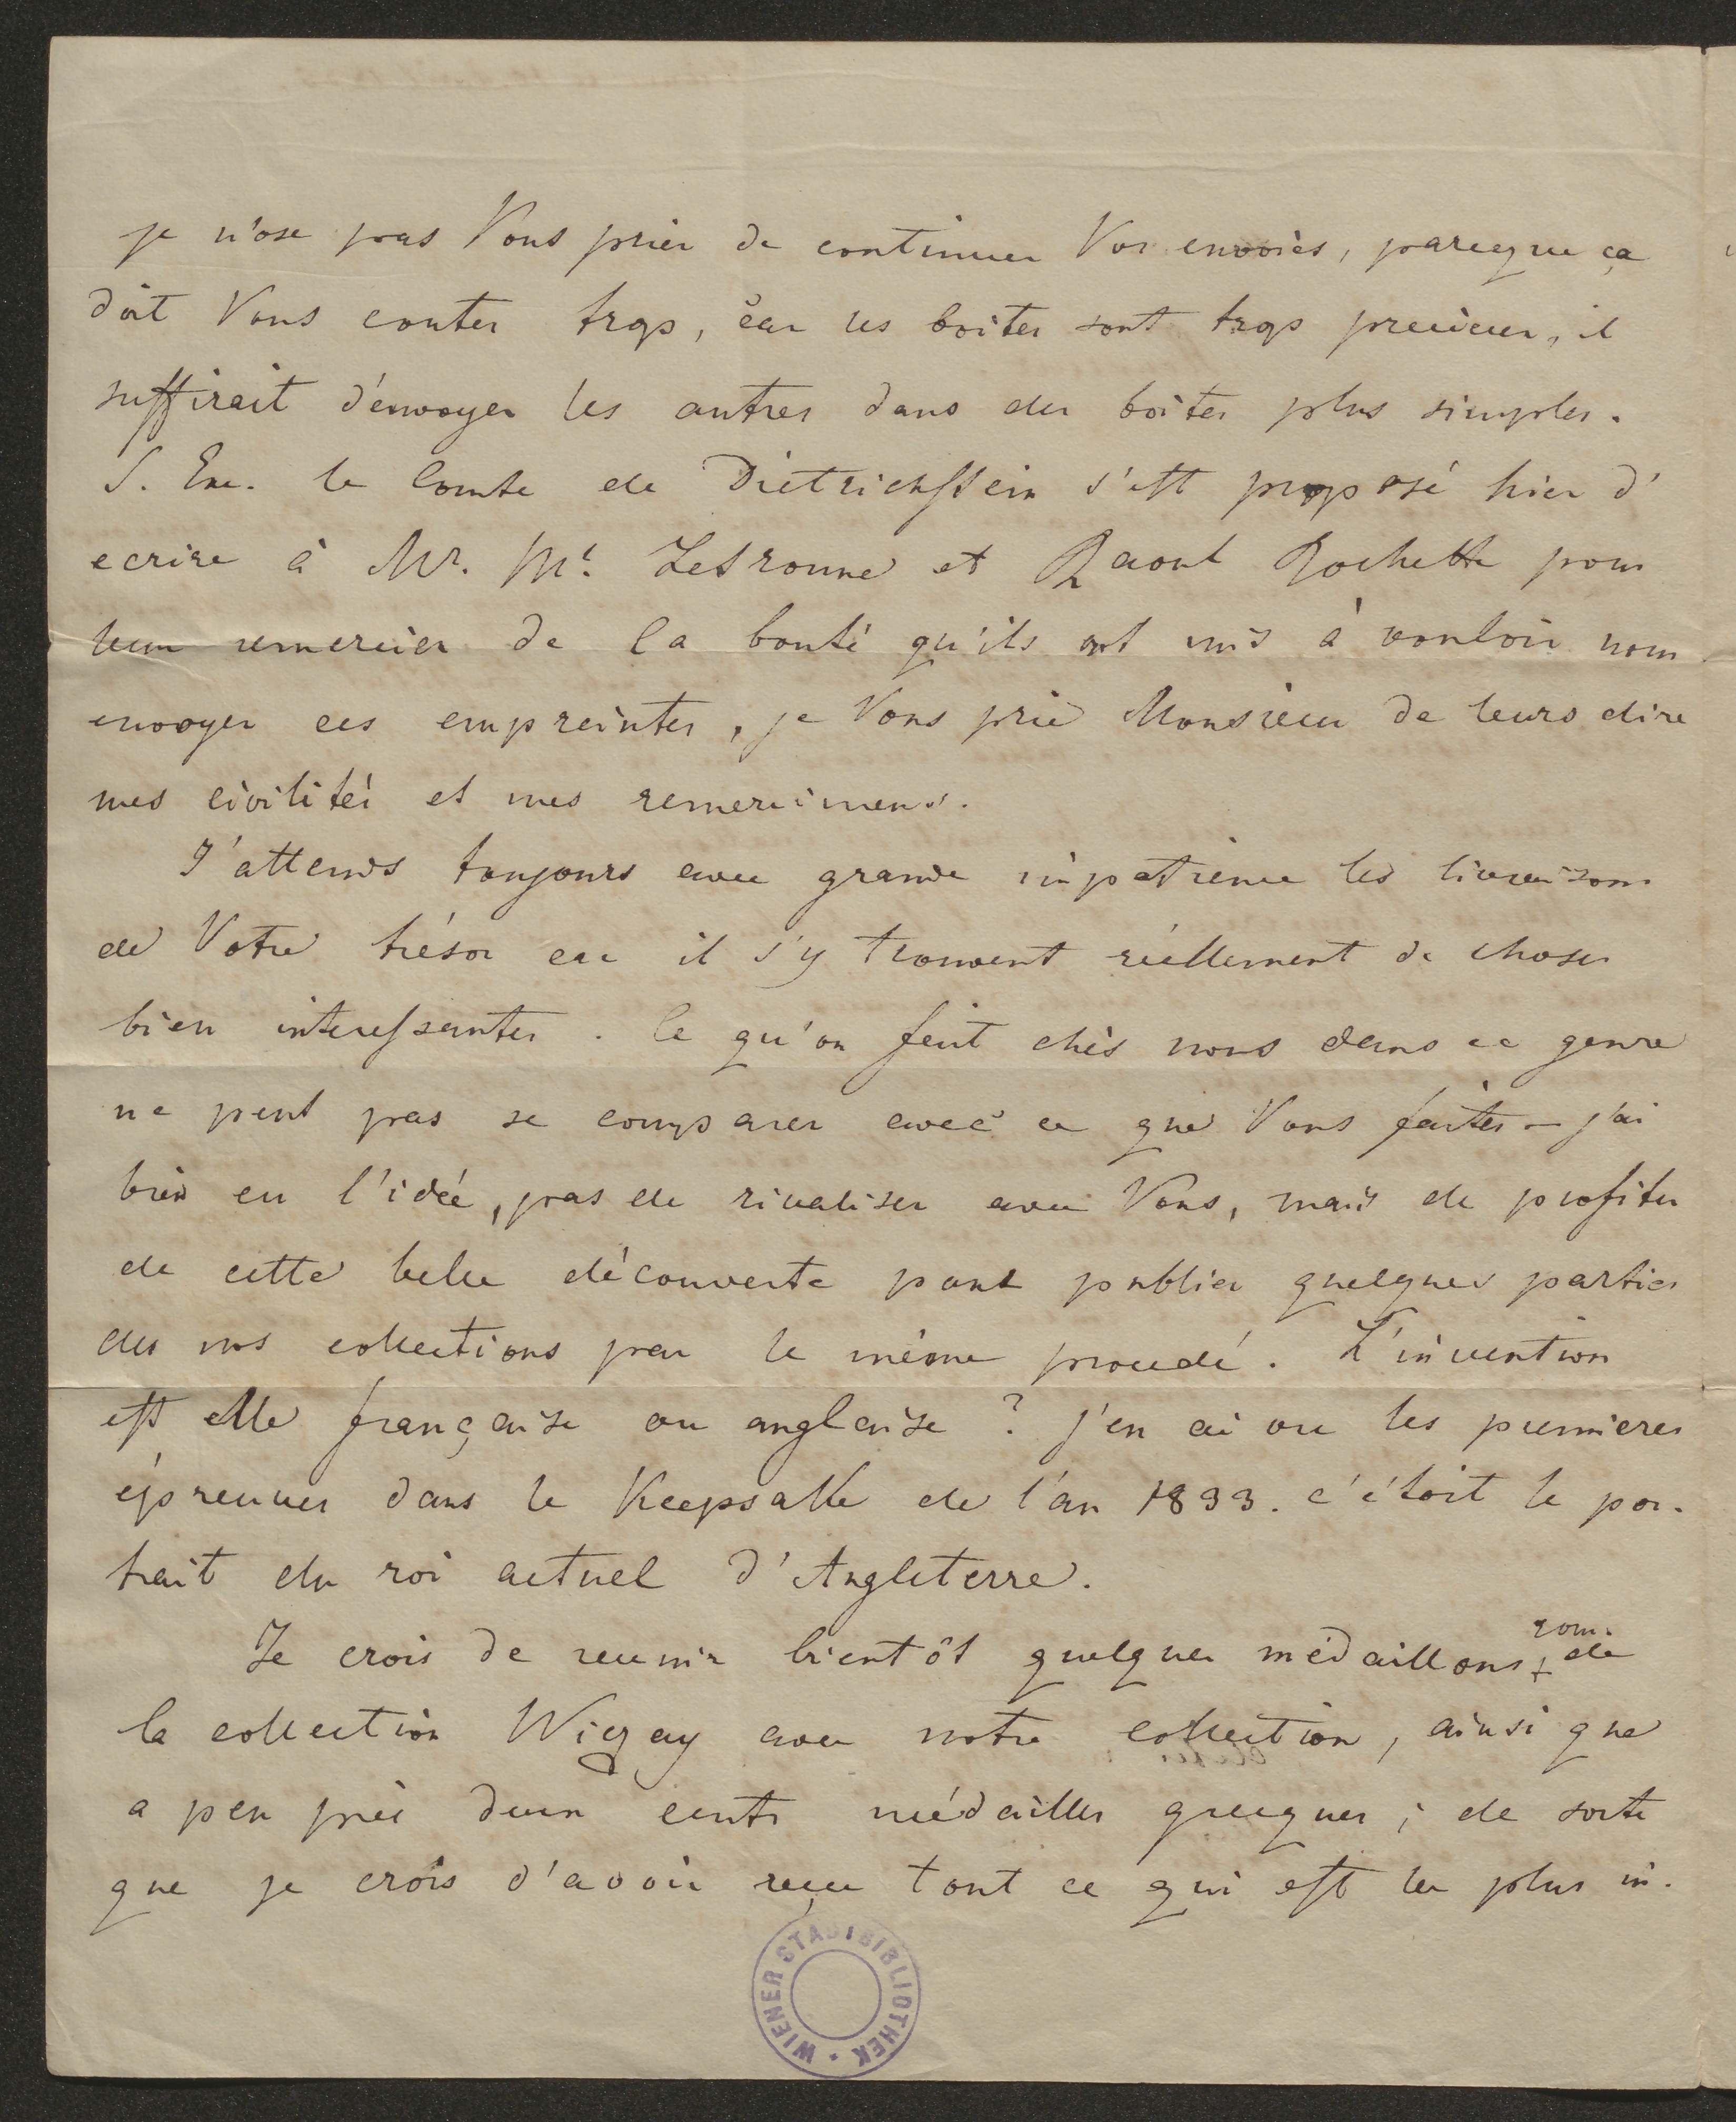 je n'ose pas Vous prier de continuer Vos envoiès, pareque ça
doit Vous couter trop, car les boites sont trop precieux, il
suffirait d'envoyer les autres dans des boites plus simples.
S. Exc. le Comte de Dietrichstein s'est proposé hier d'
ecrire à Mr. Mr. Letronne et Raoul Rochette pour
leur remercier de la bonté qu'ils ont mis à vouloir nous
envoyer ces empreintes, je Vous prie Monsieur de leurs dire
mes civilités et mes remercimens.
J'attends toujours avec grande impatience les livraisons
de Votre trésor car il s'y trouvent réellement de choses
bien interessantes. Ce qu'on fait chès nous dans ce genre
ne peut pas se comparer avec ce que Vous faites – j'ai
bien eu l'idée, pas de rivaliser avec Vous, mais de profiter
de cette belle découverte pour publier quelques parties
des nos collections par le même procedé. L'invention
est elle française ou anglaise? j'en ai vu les premieres
épreuves dans le Keepsake de l'an 1833. c'étoit le por-
trait du roi actuel d'Angleterre.
Je crois de reunir bientôt quelques médaillons rom. de
la collection Wiczay avec notre collection, ainsi que
a peu près deux cents médailles grecques; de sorte
que je crois d'avoir reçu tout ce qui est le plus in-
WIENER STADTBIBLIOTHEK